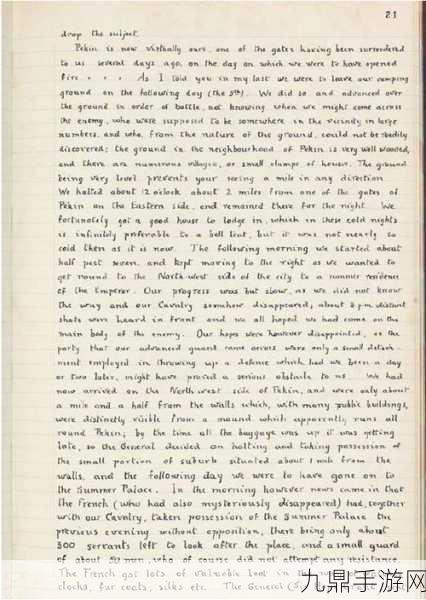 21
drop the subject.
Pekin is now virtually ours, one of the gates having been surrendered
to us several days ago, on the day on which we were to have opened
fire. . . . As I told you in my last we were to leave our camping
ground on the following day (the 5th). We did so and advanced over
the ground in order of battle, not knowing when we might come across
the enemy, who were supposed to be somewhere in the vicinity in large
numbers, and who, from the nature of the ground, could not be readily
discovered; the ground in the neighbourhood of Pekin is very well wooded,
and there are numerous villages, or small clumps of houses. The ground
being very level prevents your seeing a mile in any direction.
We halted about 12 o'clock about 2 miles from one of the gates of
Pekin on the Eastern side, and remained there for the night. We
fortunately got a good house to lodge in, which in these cold nights
is infinitely preferable to a bell tent, but it was not nearly so
cold then as it is now. The following morning we started about
half past seven, and kept moving to the right as we wanted to
get round to the North-west side of the city to a summer residence
of the Emperor. Our progress was but slow, as we did not know
the way and our Cavalry somehow disappeared; about 3 p.m. distant
shots were heard in front and we all hoped we had come on the
main body of the enemy. Our hopes were however disappointed, as the
party that our advanced guard came across were only a small detach-
ment employed in throwing up a defence which had we been a day
or two later, might have proved a serious obstacle to us. We had
now arrived on the North west side of Pekin, and were only about
a mile and a half from the walls which, with many public buildings,
were distinctly visible from a mound which apparently runs all
round Pekin; by the time all the baggage was up it was getting
late, so the General decided on halting and taking possession of
the small portion of suburb situated about 1 mile from the
walls, and the following day we were to have gone on to
the Summer Palace. In the morning however news came in that
the French (who had also mysteriously disappeared) had, together
with our Cavalry, taken possession of the Summer Palace the
previous evening without opposition, there being only about
300 servants left to look after the place, and a small guard
of about 50 men, who of course did not attempt any resistance.
The French got lots of valuable loot in the
clocks, fur coats, silks etc. The General (S
九鼎手游网